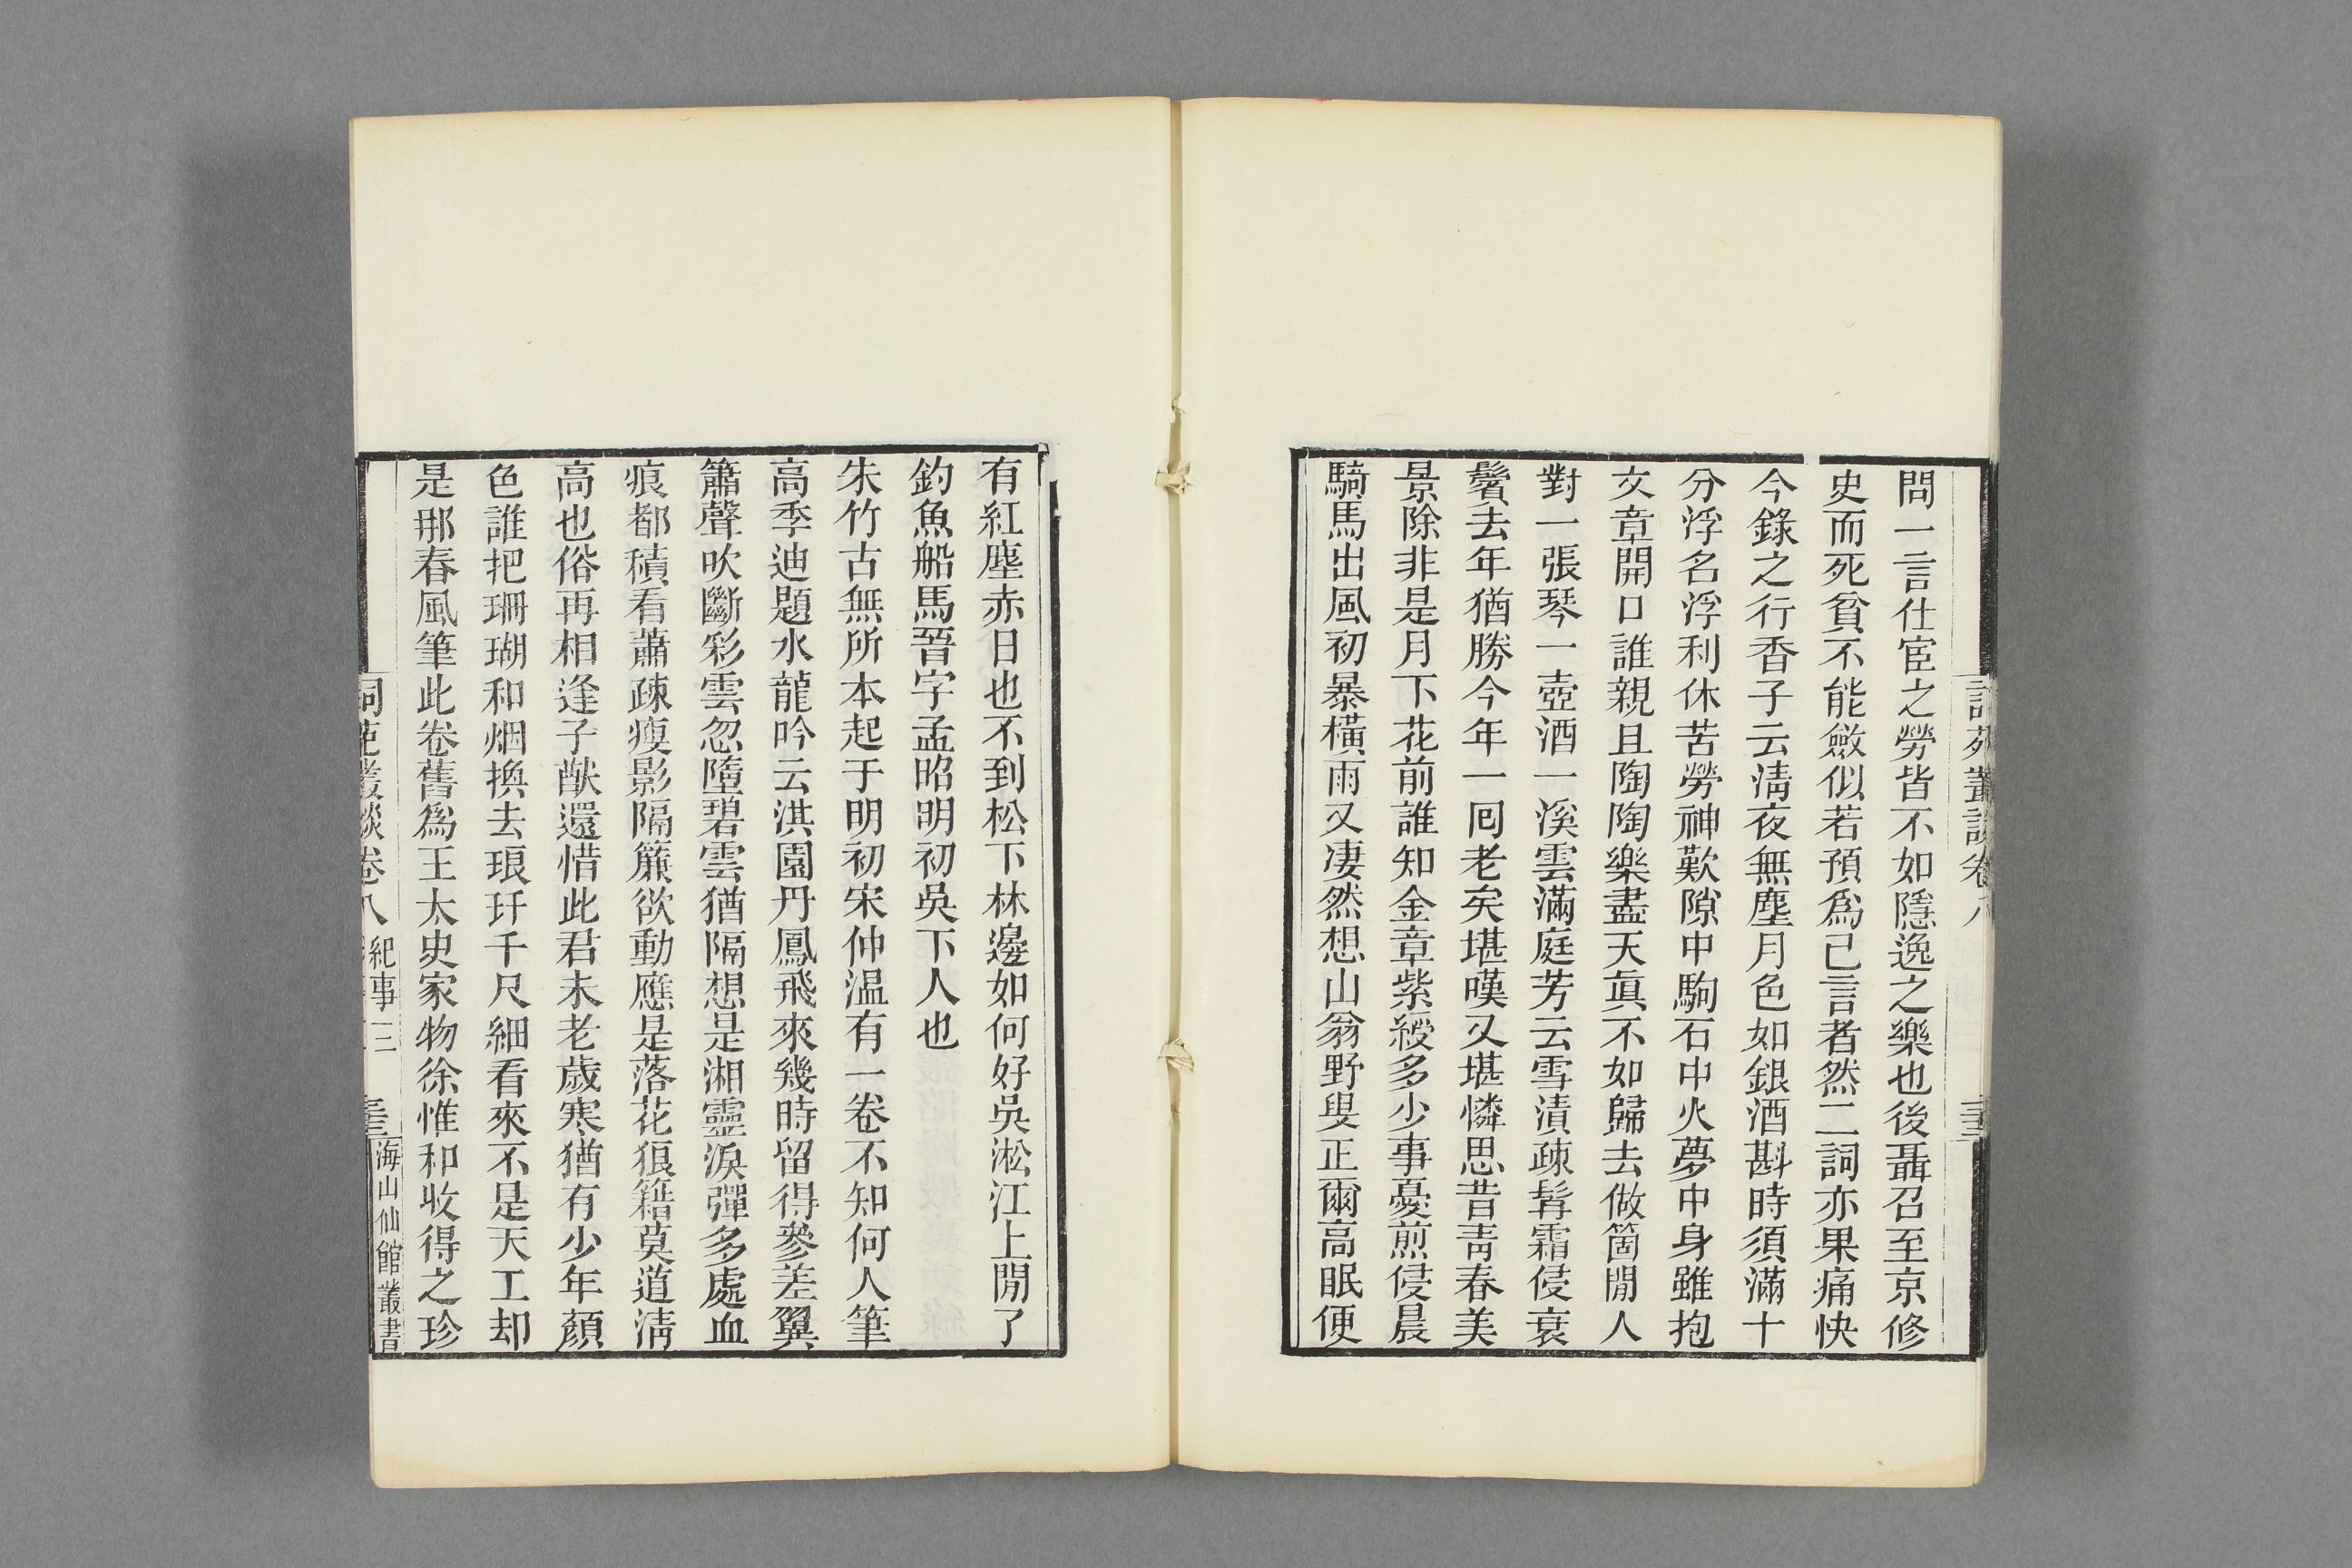 問一言仕宦之勞皆不如隱逸之樂也後聶召至京修
史而死貧不能斂似若預爲己言者然二詞亦果痛快
今錄之行香子云淸夜無塵月色如銀酒斟時須滿十
分浮名浮利休苦勞神歎隙中駒石中火夢中身雖抱
文章開口誰親且陶陶樂盡天眞不如歸去做箇閒人
對一張琴一壺酒一溪雲滿庭芳云雪漬疎髯霜侵衰
鬢去年猶勝今年一囘老矣堪嘆又堪憐思昔靑春美
景除非是月下花前誰知金章紫綬多少事憂煎侵晨
騎馬出風初暴橫雨又凄然想山翁野叟正爾高眠便
有紅塵赤日也不到松下林邊如何好吳淞江上閒了
釣魚船馬晉字孟昭明初吳下人也
朱竹古無所本起于明初宋仲溫有一卷不知何人筆
高季迪題水龍吟云淇園丹鳳飛來幾時留得參差翼
簫聲吹斷彩雲忽墮碧雲猶隔想是湘靈淚彈多處血
痕都積看蕭疎瘦影隔簾欲動應是落花狼籍莫道淸
高也俗再相逢子猷還惜此君未老歲寒猶有少年顏
色誰把珊瑚和烟換去琅玕千尺細看來不是天工却
是那春風筆此卷舊爲王太史家物徐惟和收得之珍
詞苑叢談卷八 紀事三
海山仙館叢書